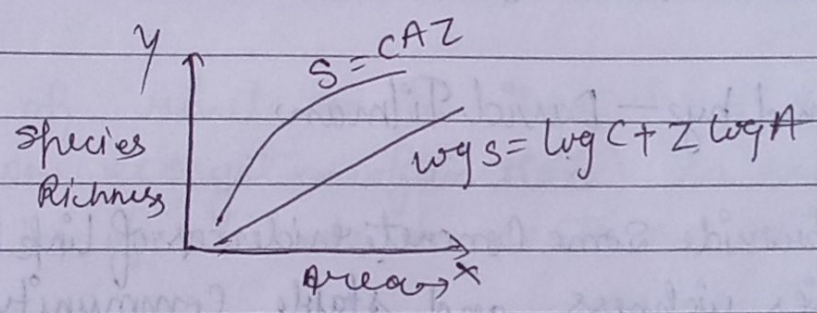 Y
S = CAZ
Species
Richness
log S = log C + Z log A
Area → X